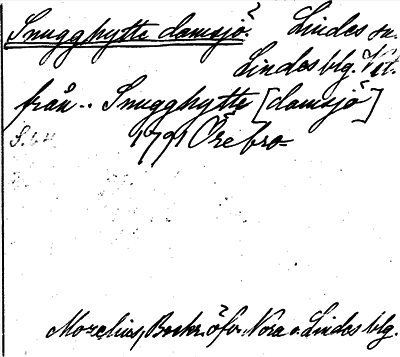 Snugghytte damsjö. Lindes sn.
Lindesblg. Vst.
från.. Snugghytte [damsjö]
1791 Örebro
Morelius, Beskr. öfv. Nora o. Lindes blg.